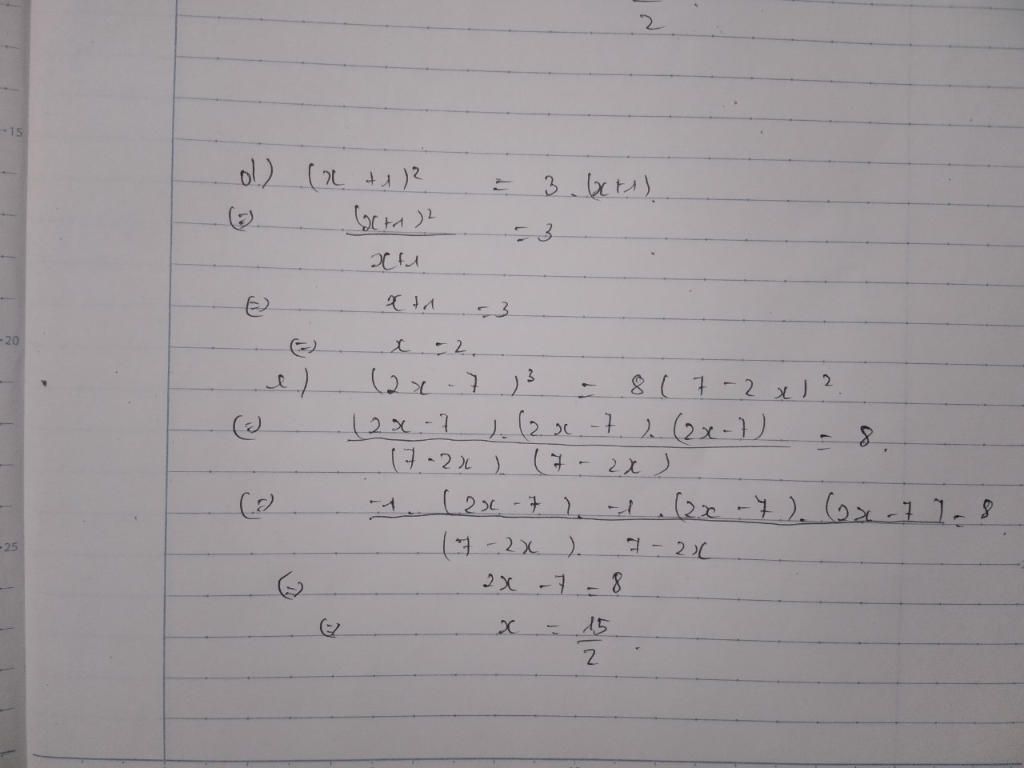 2
-15
d) (x + 1)² = 3 . (x+1)
(=) (x+1)² / x+1 = 3
(=) x+1 = 3
-20
(=) x = 2.
e) (2x - 7)³ = 8(7 - 2x)².
(=) (2x - 7).(2x - 7).(2x-7) / (7-2x).(7 - 2x) = 8.
(=) -1.(2x - 7). -1.(2x - 7).(2x - 7) / (7 - 2x). 7 - 2x = 8
-25
(=) 2x - 7 = 8
(=) x = 15/2.